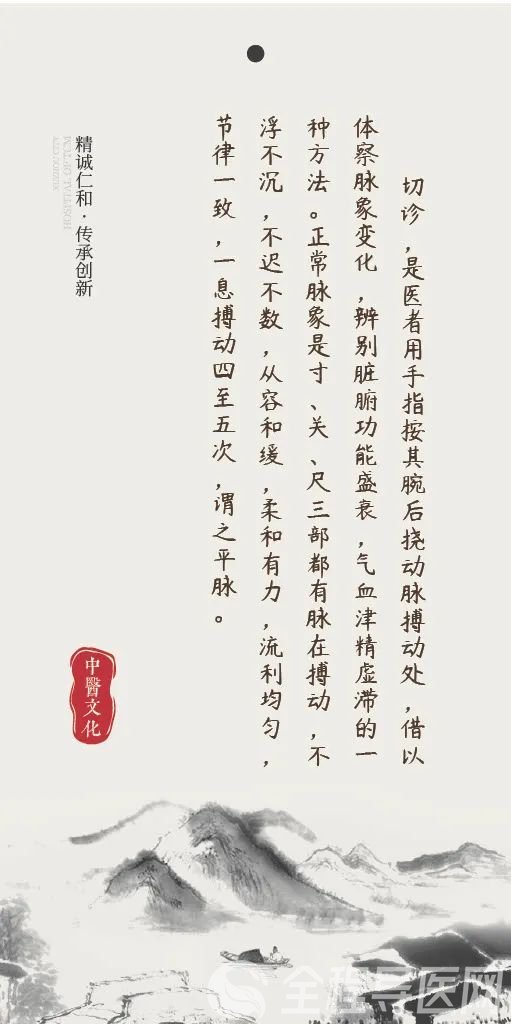 切诊，是医者用手指按其腕后挠动脉搏动处，借以
体察脉象变化，辨别脏腑功能盛衰，气血津精虚滞的一
种方法。正常脉象是寸、关、尺三部都有脉在搏动，不
浮不沉，不迟不数，从容和缓，柔和有力，流利均匀，
节律一致，一息搏动四至五次，谓之平脉。
精诚仁和·传承创新
中醫文化
全程导医网